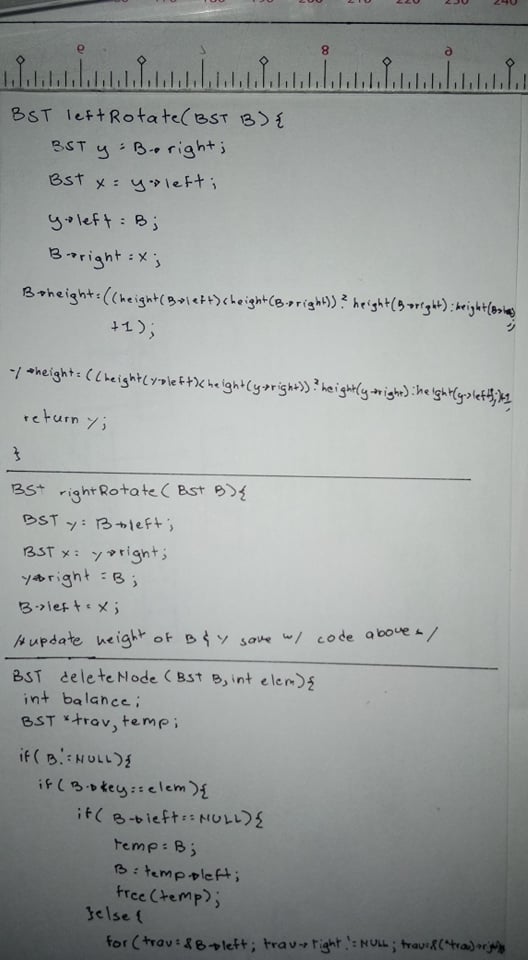 200 210 220 230 240
6 7 8 9
BST leftRotate(BST B){
BST y = B->right;
BST x = y->left;
y->left = B;
B->right = x;
B->height = ((height(B->left)<height(B->right))? height(B->right):height(B->left)
+1);
y->height = ((height(y->left)<height(y->right))? height(y->right):height(y->left))+1;
return y;
}
BST rightRotate(BST B){
BST y = B->left;
BST x = y->right;
y->right = B;
B->left = x;
/*update height of B & y save w/ code above */
BST deleteNode(BST B, int elem){
int balance;
BST *trav, temp;
if(B != NULL){
if(B->key == elem){
if(B->left == NULL){
temp = B;
B = temp->left;
free(temp);
}else{
for(trav = &B->left; trav->right != NULL; trav = &(*trav)->right)